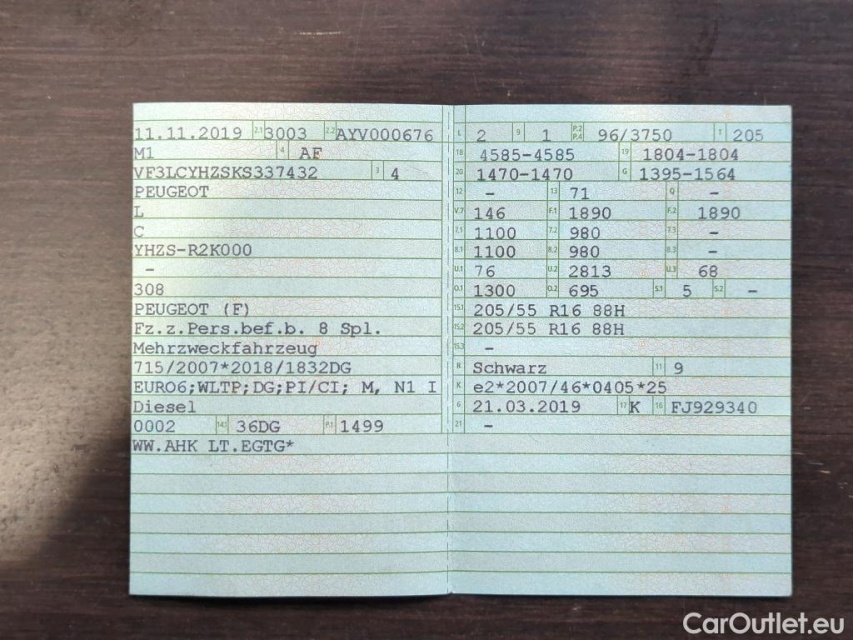 11.11.2019 2.1 3003 2.2 AYV000676
M1 4 AF
VF3LCYHZSKS337432 3 4
PEUGEOT
L
C
YHZS-R2K000
–
308
PEUGEOT (F)
Fz.z.Pers.bef.b. 8 Spl.
Mehrzweckfahrzeug
715/2007*2018/1832DG
EURO6;WLTP;DG;PI/CI; M, N1 I
Diesel
0002 14.1 36DG P.1 1499
WW.AHK LT.EGTG*
L 2 9 1 P.2 P.4 96/3750 T 205
18 4585-4585 19 1804-1804
20 1470-1470 G 1395-1564
12 – 13 71 Q –
V.7 146 F.1 1890 F.2 1890
7.1 1100 7.2 980 7.3 –
8.1 1100 8.2 980 8.3 –
U.1 76 U.2 2813 U.3 68
O.1 1300 O.2 695 S.1 5 S.2 –
15.1 205/55 R16 88H
15.2 205/55 R16 88H
15.3 –
R Schwarz 11 9
K e2*2007/46*0405*25
6 21.03.2019 17 K 16 FJ929340
21 –
CarOutlet.eu